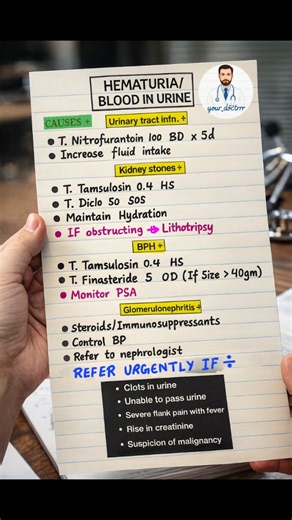 HEMATURIA/
BLOOD IN URINE
your_doctrrr
CAUSES +
Urinary tract infn. +
• T. Nitrofurantoin 100 BD x 5d
• Increase fluid intake
Kidney stones +
• T. Tamsulosin 0.4 HS
• T. Diclo 50 SOS
• Maintain Hydration
• IF obstructing → Lithotripsy
BPH +
• T. Tamsulosin 0.4 HS
• T. Finasteride 5 OD (If Size > 40gm)
• Monitor PSA
Glomerulonephritis +
• Steroids/Immunosuppressants
• Control BP
• Refer to nephrologist
REFER URGENTLY IF ÷
• Clots in urine
• Unable to pass urine
• Severe flank pain with fever
• Rise in creatinine
• Suspicion of malignancy